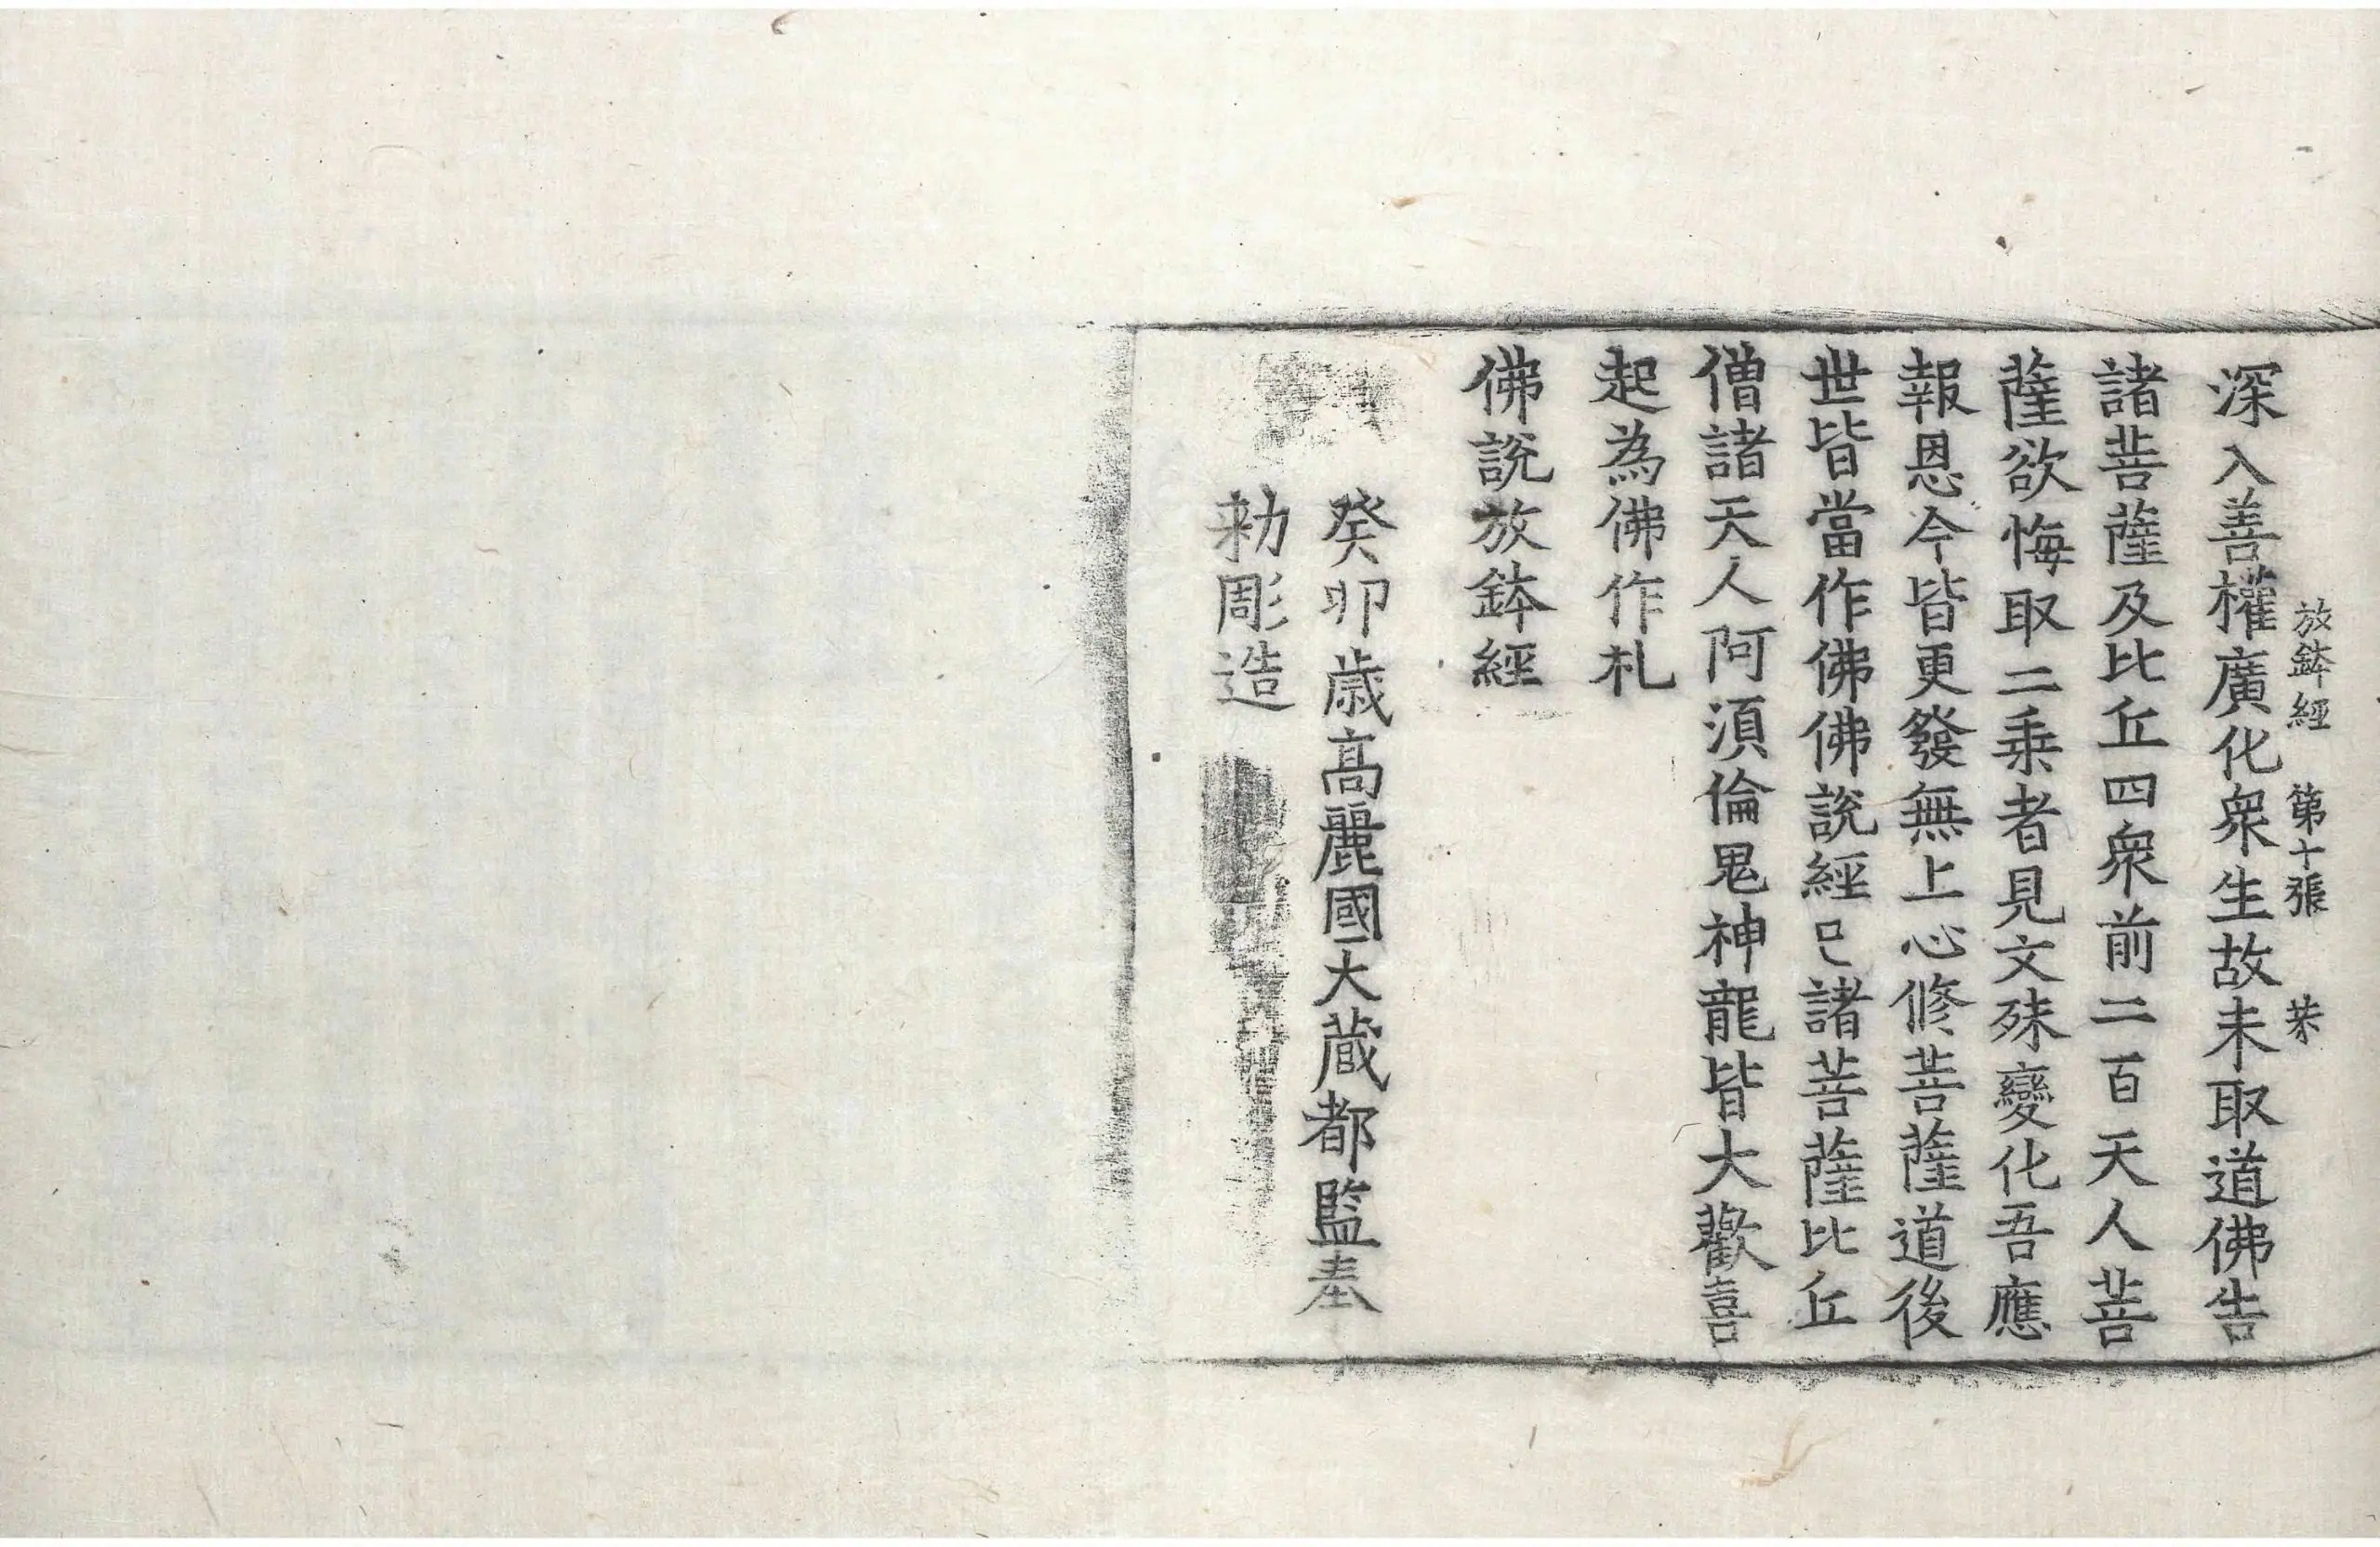 放鉢經 第十張 芥
深入善權廣化衆生故未取道佛告
諸菩薩及比丘四衆前二百天人菩
薩欲悔取二乘者見文殊變化吾應
報恩今皆更發無上心修菩薩道後
世皆當作佛佛說經已諸菩薩比丘
僧諸天人阿須倫鬼神龍皆大歡喜
起為佛作札
佛說放鉢經
癸卯歲高麗國大藏都監奉
勑彫造